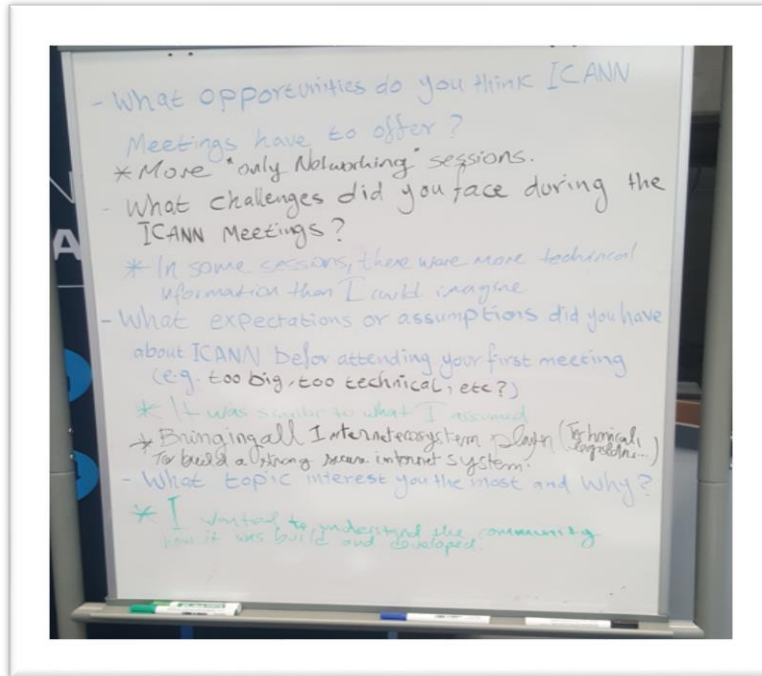 - What opportunities do you think ICANN
Meetings have to offer?
* More "only Networking" sessions.
- What challenges did you face during the
ICANN Meetings?
* In some sessions, there were more techincal
information than I could imagine
- What expectations or assumptions did you have
about ICANN befor attending your first meeting
(e.g. too big, too technical, etc?)
* It was similar to what I assumed
* Bringing all Internet ecosystem (Technical,
To build a strong secure internet system.
- What topic interest you the most and Why?
* I wanted to understand the community
how it was build and developed.
N
A